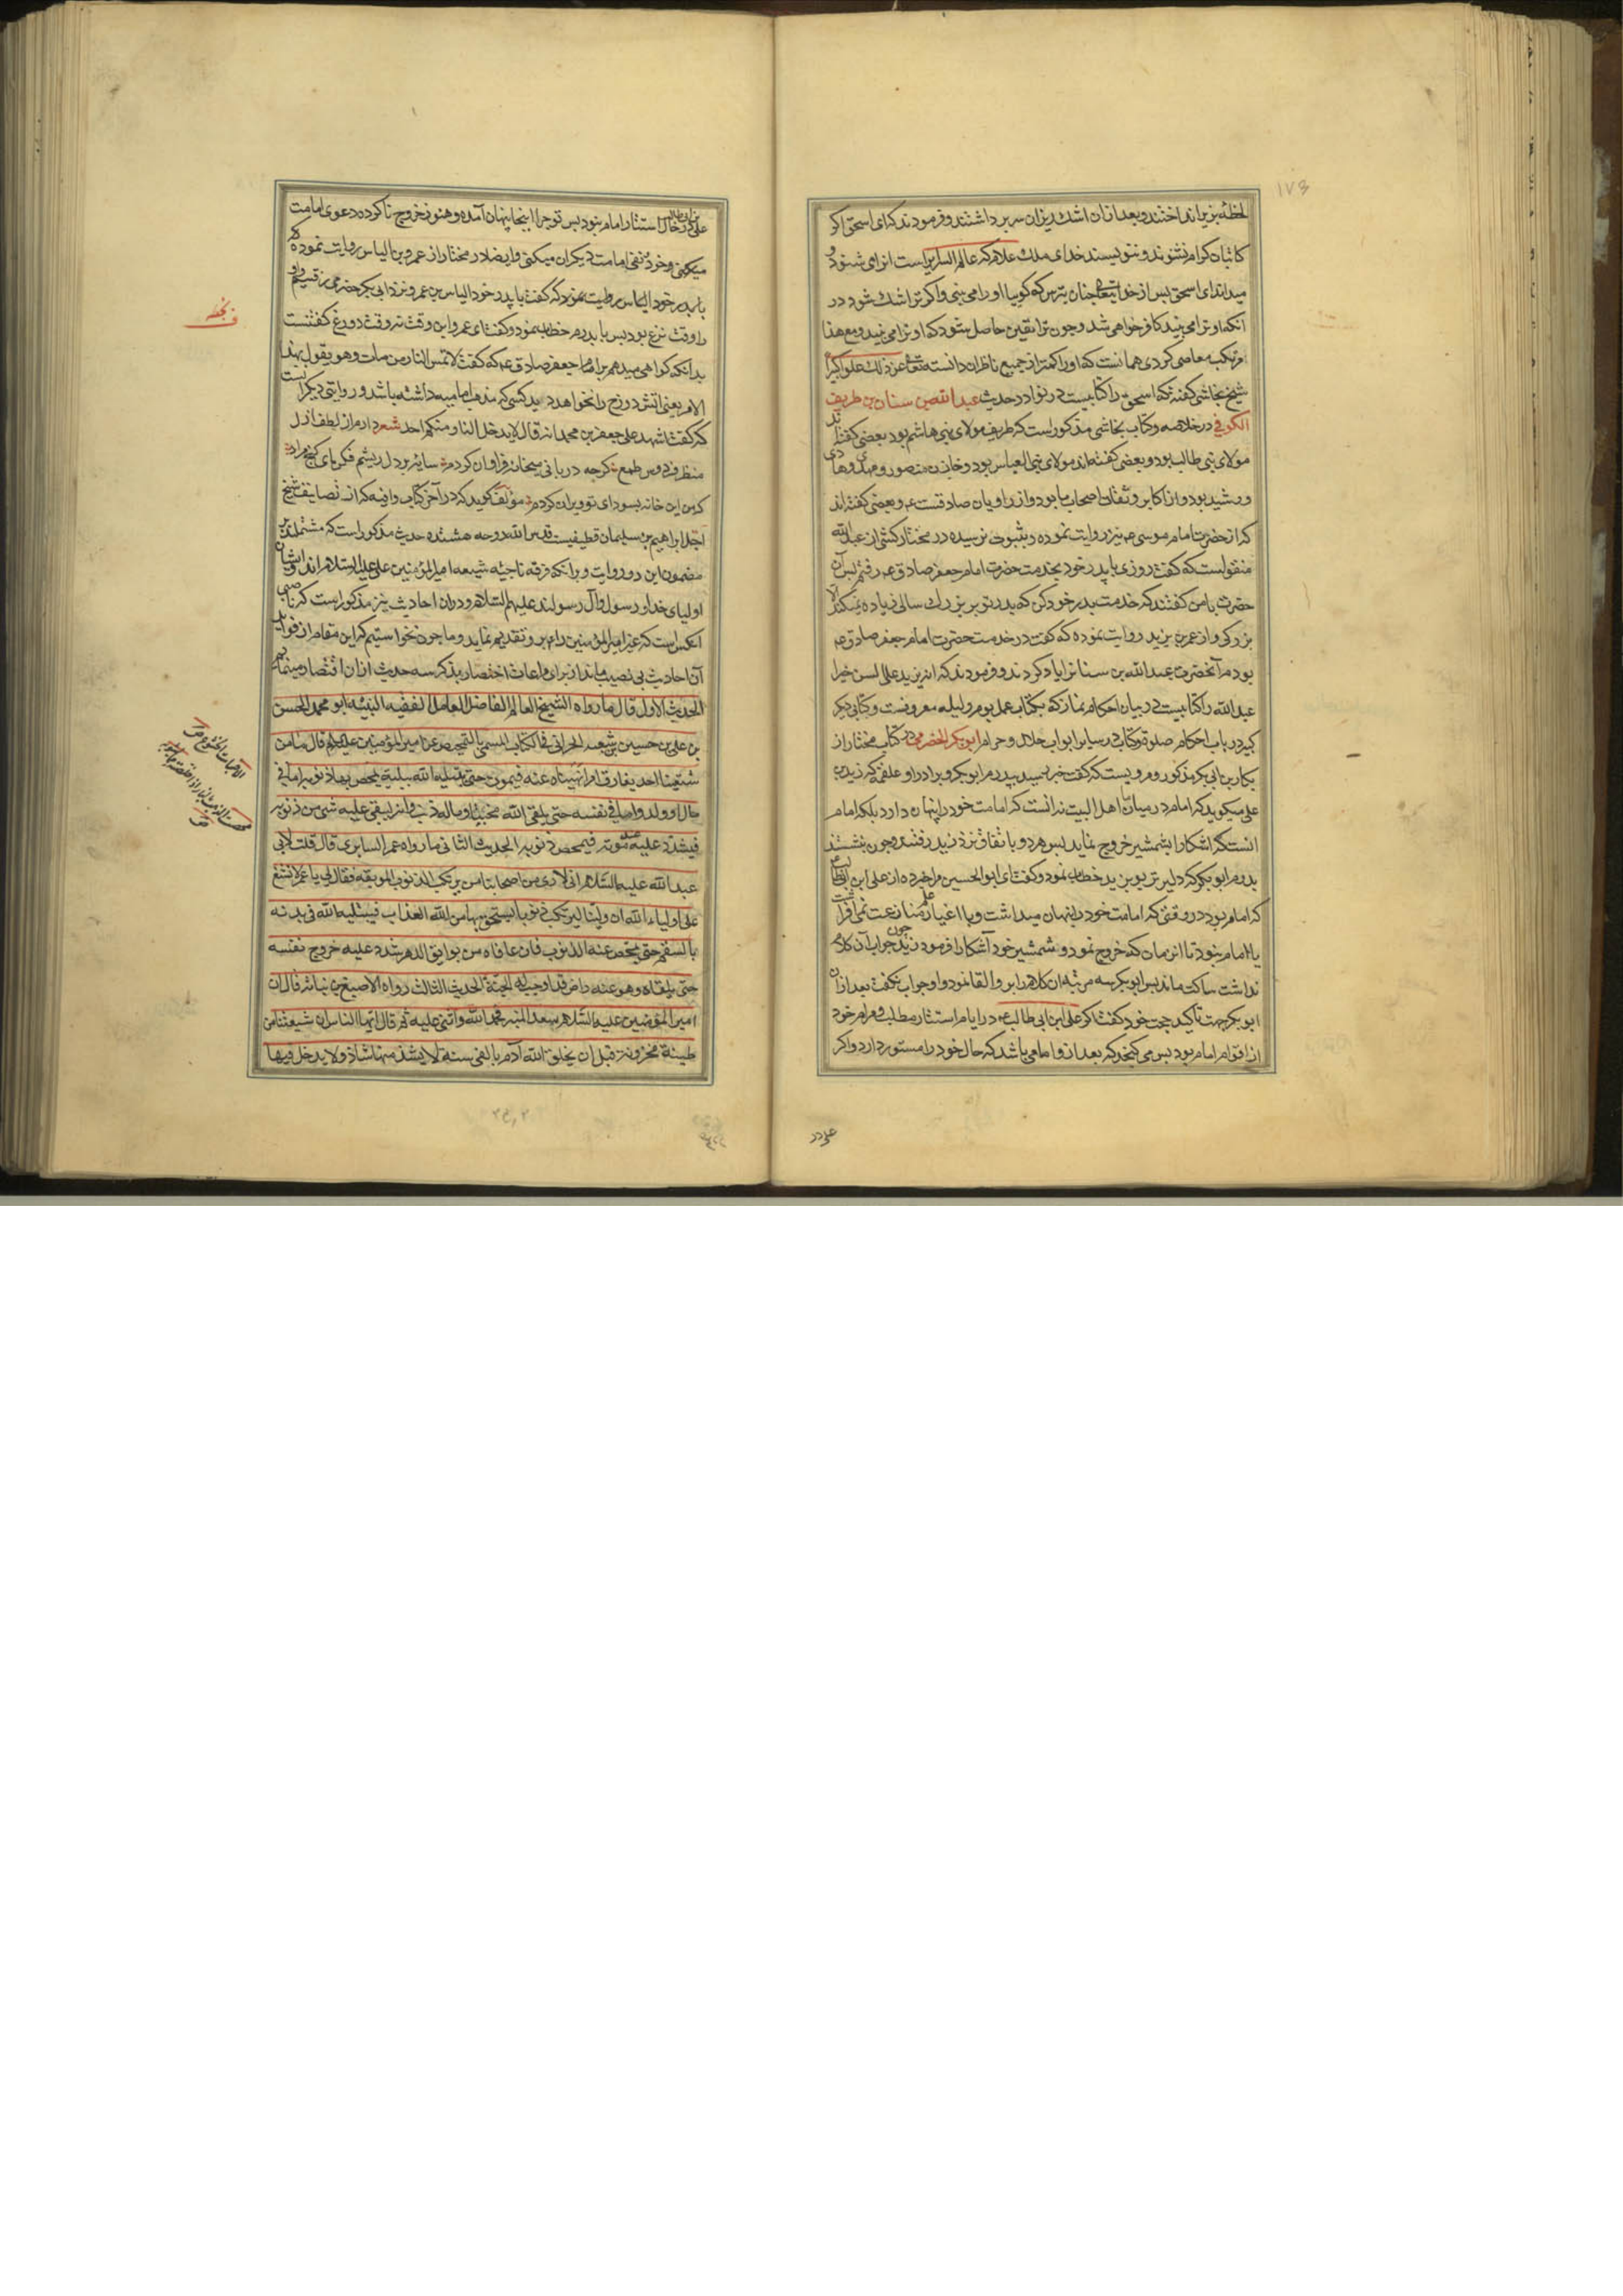 ۱۷۳
لحظهٔ بزیر انداختند و بعد ازان اشک ریزان سر برداشتند و فرمودند که ای اسحق اکر
کاتبان کرام نشنوند و ننویسند خدای ملک علام که عالم السرایر است از ای شنود و
میداند ای اسحق پس از خدایتعالی چنان بترس که کویا او را می بینی و اکر ترا شک شود در
آنکه او ترا می بیند کافر خواهی شد و چون ترا یقین حاصل شود که او ترا می بیند و مع هذا
مرتکب معاصی کردی همانست که او را کمتر از جمیع ناظران دانسته تعالی عن ذلک علوا کبیرا
شیخ نجاشی کفته که اسحق را کتابیست در نوادر حدیث عبدالله بن سنان بن طریف
الکوفی در خلاصه و کتاب نجاشی مذکور است که طریف مولای بنی هاشم بود بعضی کفته اند
مولای بنی طالب بود و بعضی کفته اند مولای بنی العباس بود و خازن منصور و مهدی و هادی
و رشید بود و از اکابر و ثقات اصحاب ما بود و از راویان صادقست ع و بعضی کفته اند
که از حضرت امام موسی ع نیز روایت نموده و بثبوت نرسیده در مختار کشی از عبدالله
منقولست که کفت روزی با پدر خود بخدمت حضرت امام جعفر صادق ع رفتم پس آن
حضرت با من کفتند که خدمت پدر خود کن که پدر تو بر بزرک سالی زیاده نمیکند الا
بزرکی و از عمر بن یزید روایت نموده که کفت در خدمت حضرت امام جعفر صادق ع
بودم آنحضرت عبدالله بن سنانرا یاد کردند و فرمودند که انه یزید علی السن خیرا
عبدالله را کتابیست در بیان احکام نماز که بکتاب عمل یوم و لیله معروفست و کتابی دیکر
کبیر در باب احکام صلوة و کتابی در سایر ابواب حلال و حرام ابوبکر الحضرمی در کتاب مختار از
بکار بن ابی بکر مذکور مرویست که کفت خبر رسید بپدرم ابوبکر و برادر او علقمه که زید بن
علی میکوید که امام در میان ما اهل البیت نه آنست که امامت خود را پنهان دارد بلکه امام
آنست که آشکارا بشمشیر خروج نماید پس هر دو باتفاق نزد زید رفتند و چون بنشستند
پدرم ابوبکر که دلیرتر بود بزید خطاب نمود و کفت ای ابوالحسین مرا خبر ده از علی ابن ابیطالب
که امام بود در وقتی که امامت خود را پنهان میداشت و با اغیار علم منازعت نمی افراشت
یا امام نبود تا آن زمان که خروج نمود و شمشیر خود آشکارا فرمود زید چون جواب آن کلام
نداشت ساکت ماند پس ابوبکر سه مرتبه آن کلام را بر او القا نمود و او جواب نکفت بعد ازان
ابوبکر جهت تأکید حجت خود کفت اکر علی ابن ابی طالب ع در ایام استتار مطلب و مرام خود
از اقوام امام بود پس می کنجد که بعد از او امامی باشد که حال خود را مستور دارد و اکر
علی در
علی بن ابی طالب در حال استتار امام نبود پس تو چرا اینجا پنهان آمده و هنوز خروج ناکرده دعوی امامت
میکنی و خود نفی امامت دیکران میکنی و ایضا در مختار از عمرو بن الیاس روایت نموده که
با پدر خود الیاس بن عمرو نزد ابی بکر حضرمی رفتیم و او
را وقت نزع بود پس با پدرم خطاب نمود و کفت ای عمرو این وقت نه وقت دروغ کفتنست
بدانکه کواهی میدهم بر امام جعفر صادق ع که کفت لا تمس النار من مات و هو یقول بهذا
الامر یعنی آتش دوزخ را نخواهد دید کسی که مذهب امامیه داشته باشد و در روایتی دیکر است
که کفت اشهد علی جعفر بن محمد انه قال لا یدخل النار منکم احد شعر دارم از لطف ازل
منظر فردوس طمع کرچه دربانی میخانه فراوان کردم سایه بر دل ریشم فکن ای کنج مراد
که من این خانه بسودای تو ویران کردم مؤلف کوید که در آخر کتاب وافیه که از تصانیف شیخ
اجل ابراهیم بن سلیمان قطیفیست قدس الله روحه هشتده حدیث مذکور است که مشتملند بر
مضمون این دو روایت و بر آنکه فرقه ناجیه شیعه امیرالمؤمنین علی علیه السلام اند و ایشان
اولیای خدا و رسول و آل رسولند علیهم السلام و در ان احادیث نیز مذکور است که ناصبی
آنکس است که غیر امیرالمؤمنین را بر او تقدیم نماید و ما چون نخواستیم که این مقام از فواید
آن احادیث بی نصیب ماند از برای مراعات اختصار بذکر سه حدیث ازان اقتصار مینمائیم
الحدیث الاول قال ما رواه الشیخ العالم الفاضل العامل الفقیه النبیه ابو محمد الحسن
بن علی بن حسین بن شعبه الحرانی فی الکتاب المسمی بالتمحیص عن امیرالمؤمنین علیه السلام قال ما من
شیعتنا احد یقارف امرا نهیناه عنه فیموت حتی یبتلیه الله ببلیة یمحص بها ذنوبه اما فی
مال او ولد و اما فی نفسه حتی یلقی الله محبنا و ماله ذنب و انه لیبقی علیه شیء من ذنوبه
فیشدد علیه عند موته فیمحص ذنوبه الحدیث الثانی ما رواه عمر السابری قال قلت لابی
عبدالله علیه السلام انی لاری من اصحابنا من یرتکب الذنوب الموبقة فقال لی یا عمر لا تشنع
علی اولیاء الله ان ولینا لیرتکب ذنوبا یستحق بها من الله العذاب فیبتلیه الله فی بدنه
بالسقم حتی یمحص عنه الذنوب فان عافاه من بوایق الدهر شدد علیه خروج نفسه
حتی یلقاه و هو عنه راض قد اوجب له الجنة الحدیث الثالث رواه الاصبغ بن نباته قال ان
امیر المؤمنین علیه السلام سعد المنبر فحمد الله و اثنی علیه ثم قال ایها الناس ان شیعتنا من
طینة مخزونة قبل ان یخلق الله آدم بالفی سنة لا یشذ منها شاذ و لا یدخل فیها